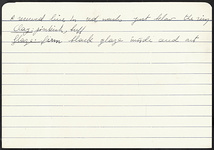 A second line in red wash just below the ring
Clay: pinkish buff
Glaze: firm black glaze inside and out